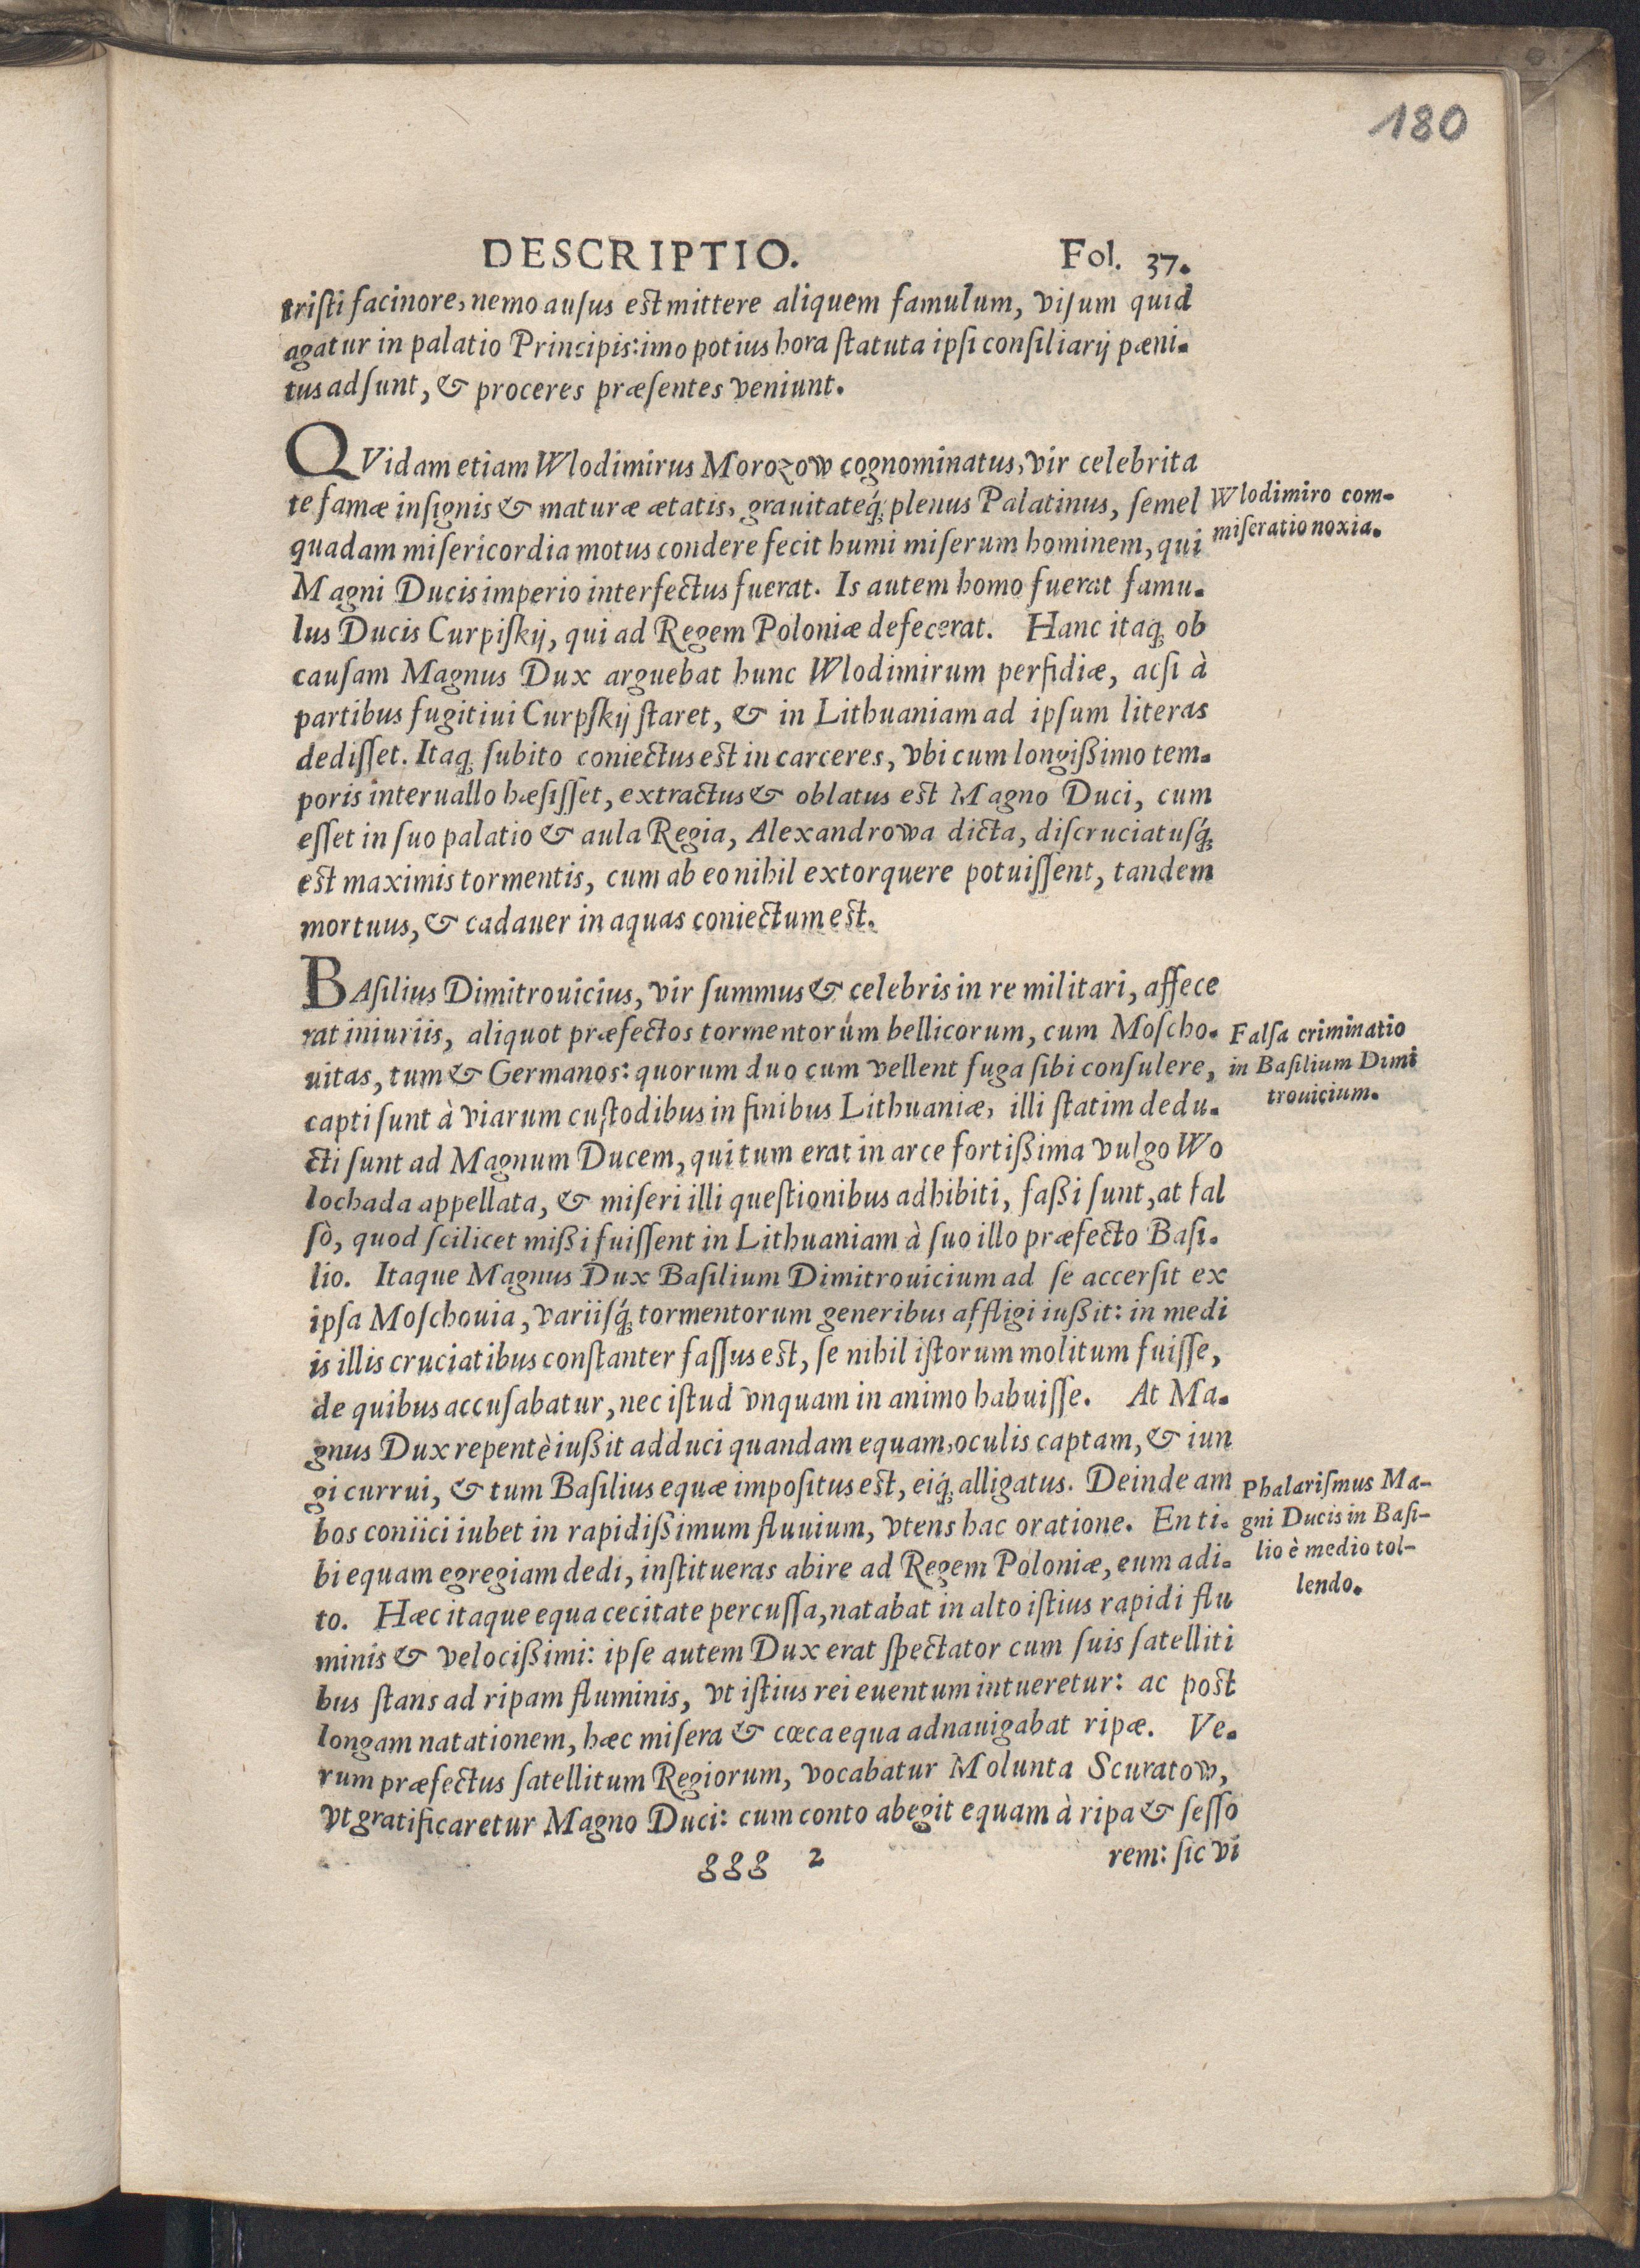 180
DESCRIPTIO. Fol. 37.
triſti facinore, nemo auſus est mittere aliquem famulum, viſum quid
agatur in palatio Principis: imo potius hora ſtatuta ipſi conſiliarij pæni-
tus adſunt, & proceres præſentes veniunt.
QVidam etiam Wlodimirus Morozow cognominatus, vir celebrita
te famæ inſignis & maturæ ætatis, grauitateq́; plenus Palatinus, ſemel
Wlodimiro com-
miſeratio noxia.
quadam miſericordia motus condere fecit humi miſerum hominem, qui
Magni Ducis imperio interfectus fuerat. Is autem homo fuerat famu-
lus Ducis Curpiſkij, qui ad Regem Poloniæ defecerat. Hanc itaq; ob
cauſam Magnus Dux arguebat hunc Wlodimirum perfidiæ, acſi à
partibus fugitiui Curpſkij ſtaret, & in Lithuaniam ad ipſum literas
dediſſet. Itaq; ſubito coniectus est in carceres, vbi cum longißimo tem-
poris interuallo hæſiſſet, extractus & oblatus est Magno Duci, cum
eſſet in ſuo palatio & aula Regia, Alexandrowa dicta, diſcruciatuſq́;
est maximis tormentis, cum ab eo nihil extorquere potuiſſent, tandem
mortuus, & cadauer in aquas coniectum est.
BAſilius Dimitrouicius, vir ſummus & celebris in re militari, affece
rat iniuriis, aliquot præfectos tormentorúm bellicorum, cum Moſcho-
Falſa criminatio
in Baſilium Dimi
trouicium.
uitas, tum & Germanos: quorum duo cum vellent fuga ſibi conſulere,
capti ſunt à viarum cuſtodibus in finibus Lithuaniæ, illi ſtatim dedu-
cti ſunt ad Magnum Ducem, qui tum erat in arce fortißima vulgo Wo
lochada appellata, & miſeri illi queſtionibus adhibiti, faßi ſunt, at fal
ſò, quod ſcilicet mißi fuiſſent in Lithuaniam à ſuo illo præfecto Baſi-
lio. Itaque Magnus Dux Baſilium Dimitrouicium ad ſe accerſit ex
ipſa Moſchouia, variiſq́; tormentorum generibus affligi iußit: in medi
is illis cruciatibus conſtanter faſſus est, ſe nihil iſtorum molitum fuiſſe,
de quibus accuſabatur, nec iſtud vnquam in animo habuiſſe. At Ma-
gnus Dux repentè iußit adduci quandam equam, oculis captam, & iun
gi currui, & tum Baſilius equæ impoſitus est, eiq́; alligatus. Deinde am
Phalariſmus Ma-
gni Ducis in Baſi-
lio è medio tol-
lendo.
bos coniici iubet in rapidißimum fluuium, vtens hac oratione. En ti-
bi equam egregiam dedi, inſtitueras abire ad Regem Poloniæ, eum adi-
to. Hæc itaque equa cecitate percuſſa, natabat in alto iſtius rapidi flu
minis & velocißimi: ipſe autem Dux erat ſpectator cum ſuis ſatelliti
bus ſtans ad ripam fluminis, vt iſtius rei euentum intueretur: ac post
longam natationem, hæc miſera & cœca equa adnauigabat ripæ. Ve-
rum præfectus ſatellitum Regiorum, vocabatur Molunta Scuratow,
vt gratificaretur Magno Duci: cum conto abegit equam à ripa & ſeſſo
ggg 2 rem: ſic vi